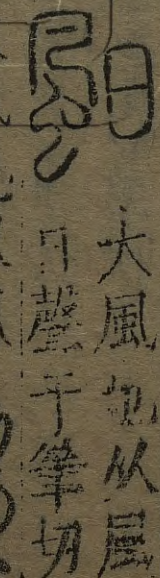 䫻
大風也从風
日聲于筆切